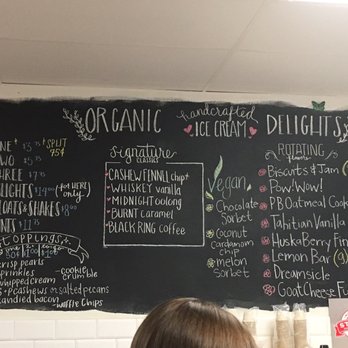 ORGANIC
handcrafted
ICE CREAM
DELIGHTS
ONE+ $3.75 +SPLIT 75¢
TWO $5.75
THREE $7.75
LIGHTS $14.00 (FOR HERE ONLY)
FLOATS & SHAKES $8.00
PINTS $11.75
TOPPINGS
crisp pearls
sprinkles
whipped cream
cashews or salted pecans
candied bacon
-cookie crumble
-waffle chips
signature
CLASSICS
CASHEW FENNEL chip+
WHISKEY vanilla
MIDNIGHT oolong
BURNT caramel
BLACK RING coffee
Vegan
Chocolate
Sorbet
Coconut
cardamom
chip
melon
sorbet
ROTATING
flavors
Biscuits & Jam
Pow! Wow!
PB Oatmeal Cook
Tahitian Vanilla
HuskaBerry Fin
Lemon Bar (g
Dreamsicle
Goat Cheese Fu